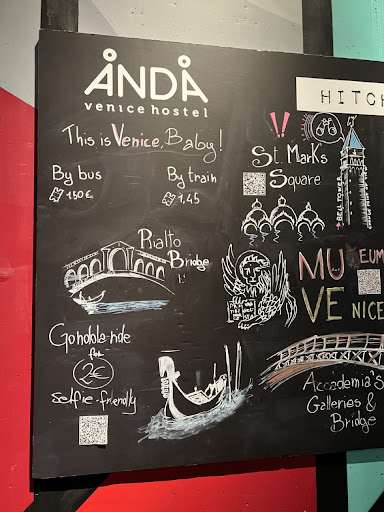 ANDA
venice hostel
HITCH
This is Venice, Baby!
By bus
1.50€
By train
1,45
!!
St. Mark's
Square
BELL TOWER
Rialto
Bridge
MUSEUM
VENICE
Gondola-ride
for
2€
selfie-friendly
Accademia's
Galleries &
Bridge